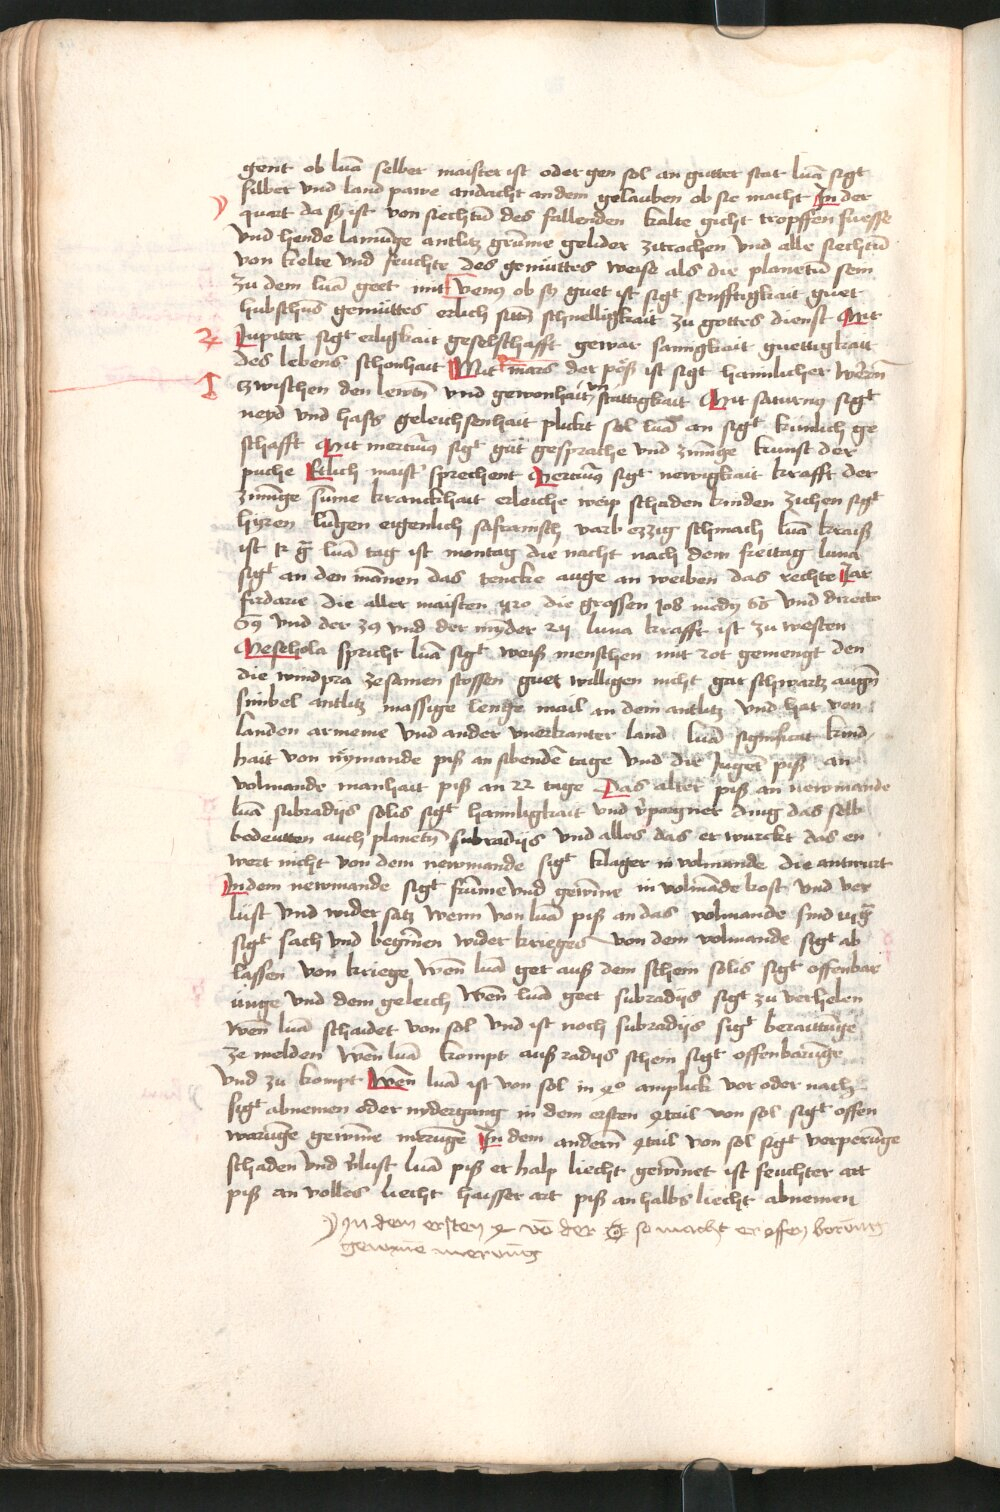 gent ob luā selber maister ist oder gen sol an gutter stat luā sigt
silber vnd land pawe andacht an dem gelauben ob sie macht In der
quart da sy ist von siechtū des fallenden kalte gicht tropffen fuesse
vnd hende lamūge antlitz grūme gelider zitrochen vnd alle siechtū
von kelte vnd feuchte des gemüttes weise als die planetū sein
zu dem luā geet mit Venꝰ ob sy guet ist sigt senfftigkait guet
hubschus gemüttes erlich sittn̄ schnelligkait zu gottes dienst Mit
♃ Jupiter sigt erligkait geselschafft gewar sainigkait guettigkait
des lebens schonhait Mit mars der pöß ist sigt hainlicher
zwischen den lewtn̄ vnd gewonhait vn̄ stättigkait Mit saturnꝰ sigt
neyd vnd hass geleichsenhait plickt sol luā an sigt kunlich ge
schafft Mit mercuriꝰ sigt gut gesprache vnd zūnge kunst der
puche Etlich maist sprechent Mercuriꝰ sigt newigkait krafft der
zūnge stīme kranckhait erleiche weip schaden kinden zichen sigt
hiren lūgen eigenlich safranisch varb ezzig schmach luā kraiß
ist luā tag ist montag die nacht nach dem freitag luna
sigt an den mānen das tencke auge an weiben das rechte Jar
firdarie die aller maisten 420 die grossen 108 medꝰ 66 vnd directo
69 vnd der 39 vnd der mynder 24 luna krafft ist zu westen
Meschola spricht luā sigt weiß menschen mit rot gemengt den
die windpra zesamen stossen guet willigen nicht gar schwartz augn̄
sinbel antlitz massige lenge mail an dem antlitz vnd hat von
landen armenie vnd ander vnerkanter land luā significat kind
hait von nÿmande piß an sibende tage vnd die Jugēt piß an
volmande manhait piß an 22 tage Das alter piß an newmande
luā subradijs solis sigt hainligkait vnd v̄porgner ding das selb
bedeutten auch planetn̄ subradijs vnd alles das er wurckt das en
wert nicht von dem newmande sigt klager in volmande die antwurt
In dem newmande sigt frūme vnd gewīne in volmāde kost vnd ver
lust vnd wider satz wenn von luā piß an das volmande sind
sigt sach vnd begīnen wider krieges von dem volmande sigt ab
lassen von kriege wen̄ luā get auß dem schein solis sigt offenbar
ūnge vnd dem geleich wen̄ luā geet subradijs sigt zu verhelen
wen̄ luā schaidet von sol vnd ist noch subradijs sigt beraittūge
ze melden wen̄ luā kompt auß radijs schein sigt offenbarūge
vnd zu kompt Wen̄ luā ist von sol in 4º anplick vor oder nach
sigt abnemen oder nydergang in dem ersten 4tail von sol sigt offen
warūge gewīne merūge In dem andern̄ 4tail von sol sigt verperūge
schaden vnd v̄lust luā piß er halp liecht gewīnet ist feuchter art
piß an volles liecht haisser art piß an halbs liecht abnemen
In dem ersten 4 vō der so macht er offen borūng
gewīne merūng